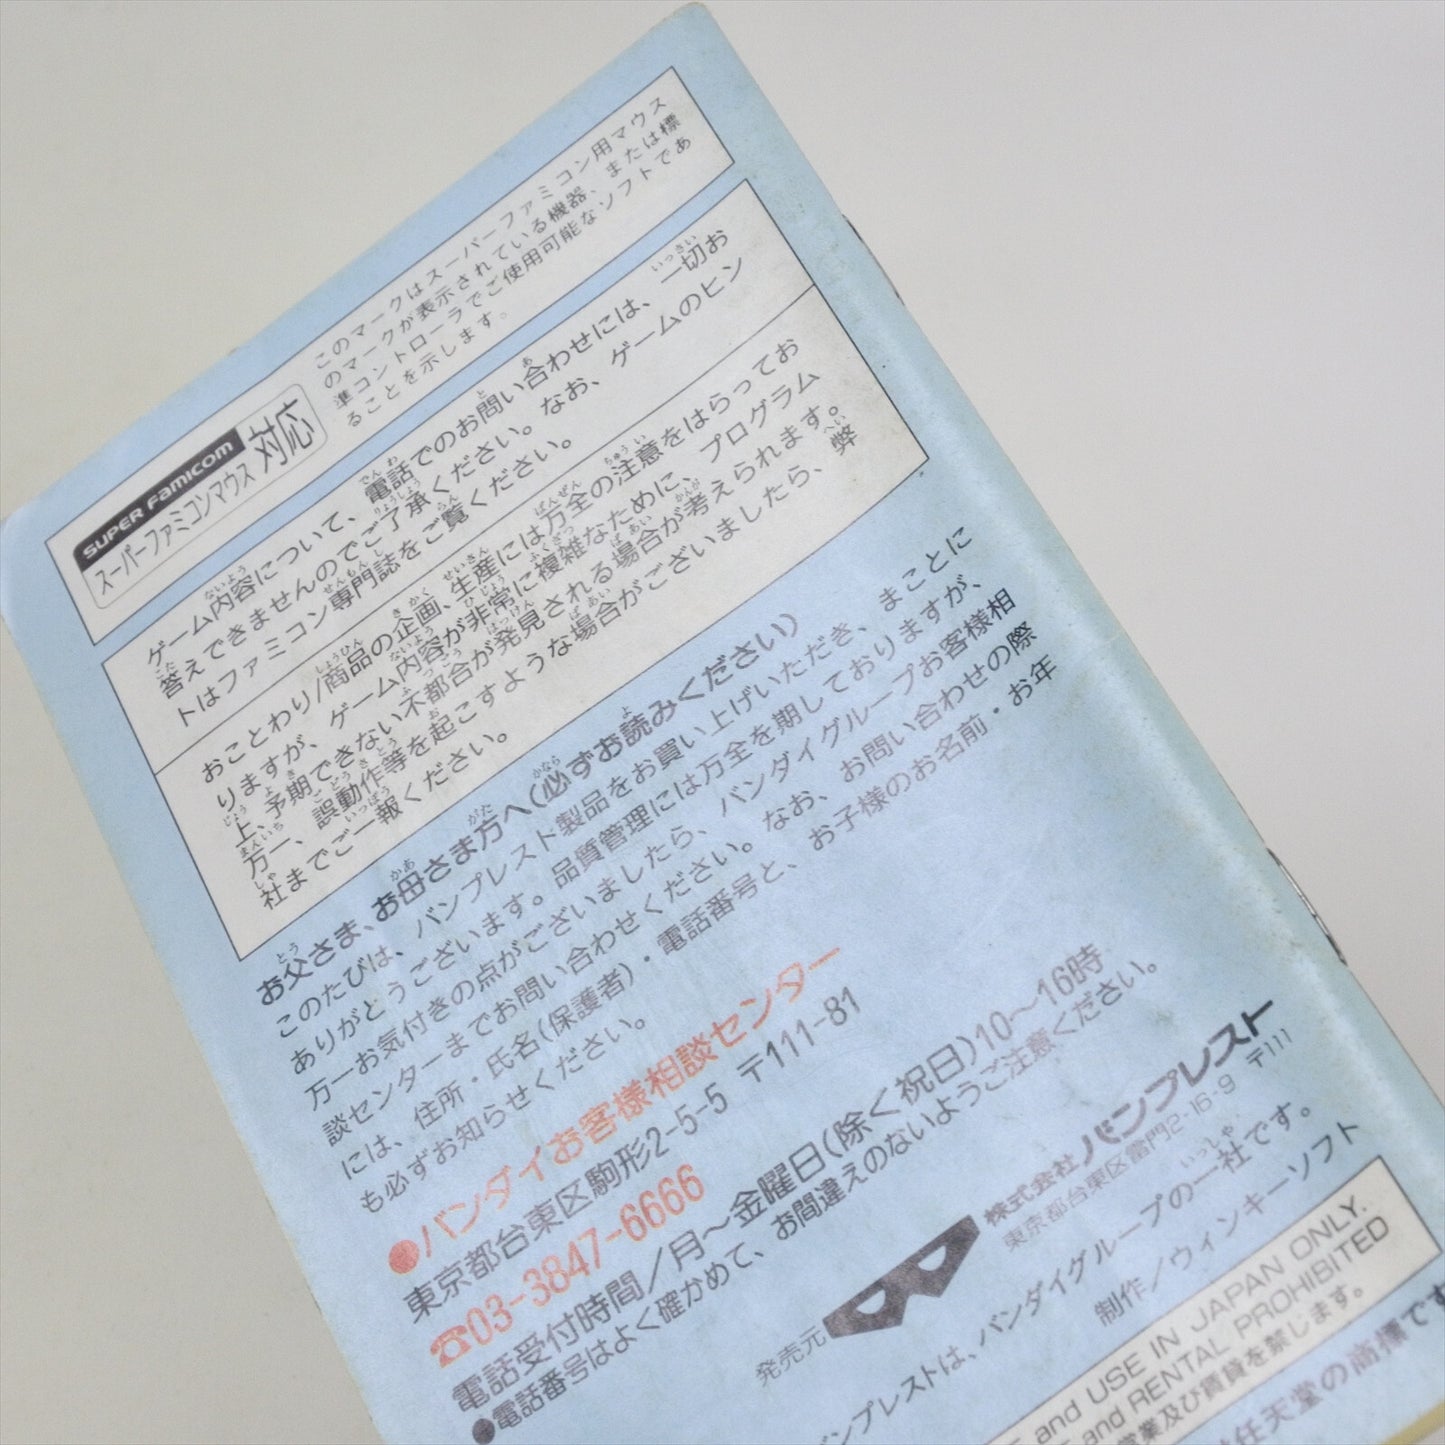 SUPER FAMICOM
スーパーファミコンマウス
対応
このマークはスーパーファミコン用マウス
のマークが表示されている機器、または標
準コントローラでご使用可能なソフトであ
ることを示します。
ゲーム内容について、電話でのお問い合わせには、一切お
答えできませんのでご了承ください。なお、ゲームのヒン
トはファミコン専門誌をご覧ください。
おことわり/商品の企画、生産には万全の注意をはらってお
りますが、ゲーム内容が非常に複雑なために、プログラム
上、予期できない不都合が発見される場合が考えられます。
万一、誤動作等を起こすような場合がございましたら、弊
社までご一報ください。
お父さま、お母さま方へ(必ずお読みください)
このたびは、バンプレスト製品をお買い上げいただき、まことに
ありがとうございます。品質管理には万全を期しておりますが、
万一お気付きの点がございましたら、バンダイグループお客様相
談センターまでお問い合わせください。なお、お問い合わせの際
には、住所・氏名(保護者)・電話番号と、お子様のお名前・お年
も必ずお知らせください。
●バンダイお客様相談センター
東京都台東区駒形2-5-5 〒111-81
☎03-3847-6666
電話受付時間/月〜金曜日(除く祝日)10〜16時
●電話番号はよく確かめて、お間違えのないようご注意ください。
発売元
株式会社バンプレスト
東京都台東区雷門2-16-9 〒111
ンプレストは、バンダイグループの一社です。
制作/ウィンキーソフト
and USE IN JAPAN ONLY.
and RENTAL PROHIBITED
営業及び賃貸を禁じます。
任天堂の商標です